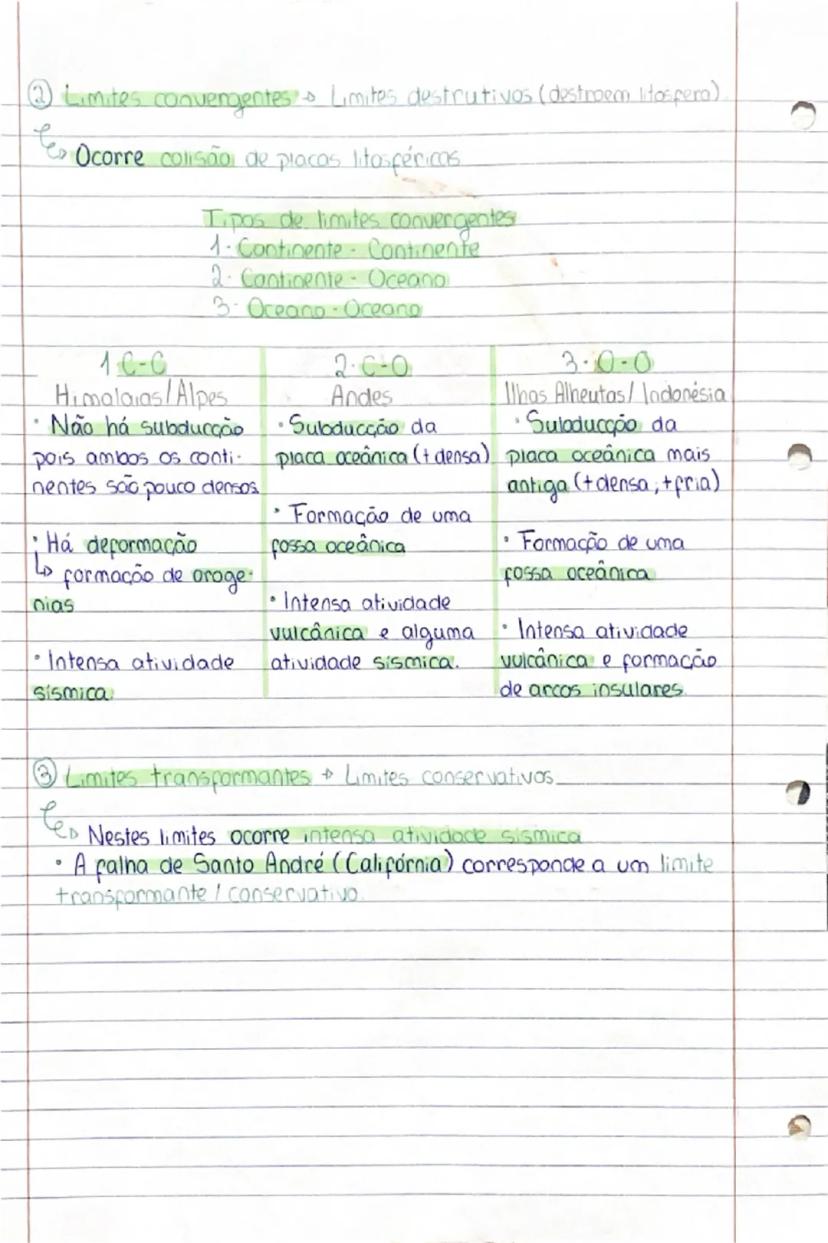 ② Limites convergentes → Limites destrutivos (destroem litosfera)
↳ Ocorre colisão de placas litosféricas
Tipos de limites convergentes
1- Continente - Continente
2- Continente - Oceano
3- Oceano - Oceano
1 C-C
Himalaias/Alpes
· Não há subducção
pois ambos os conti-
nentes são pouco densos
· Há deformação
↳ formação de oroge-
nias
· Intensa atividade
sísmica.
2- C-O
Andes
· Subducção da
placa oceânica (+densa)
· Formação de uma
fossa oceânica
· Intensa atividade
vulcânica e alguma
atividade sísmica.
3- O-O
Ilhas Alheutas/ Indonésia
· Subducção da
placa oceânica mais
antiga (+densa, +fria)
· Formação de uma
fossa oceânica
· Intensa atividade
vulcânica e formação
de arcos insulares
③ Limites transformantes → Limites conservativos
↳ Nestes limites ocorre intensa atividade sísmica
· A falha de Santo André (Califórnia) corresponde a um limite
transformante / conservativo.